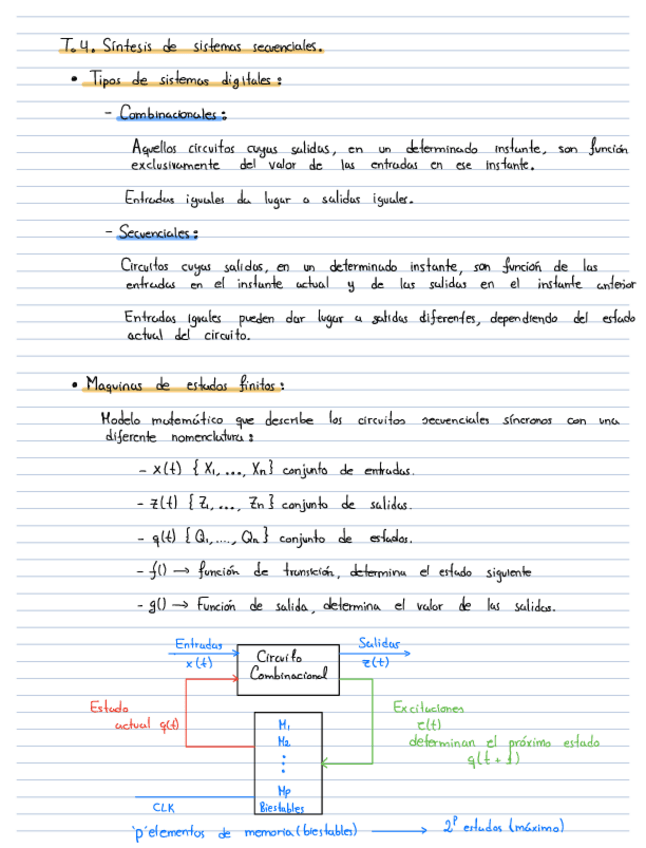 T.4. Síntesis de sistemas secuenciales.
• Tipos de sistemas digitales:
- Combinacionales:
Aquellos circuitos cuyas salidas, en un determinado instante, son función
exclusivamente del valor de las entradas en ese instante.
Entradas iguales da lugar a salidas iguales.
- Secuenciales:
Circuitos cuyas salidas, en un determinado instante, son función de las
entradas en el instante actual y de las salidas en el instante anterior
Entradas iguales pueden dar lugar a salidas diferentes, dependiendo del estado
actual del circuito.
• Maquinas de estados finitos:
Modelo matemático que describe los circuitos secuenciales síncronos con una
diferente nomenclatura:
- x(t) {X₁, ..., Xn} conjunto de entradas.
- z(t) {Z₁, ..., Zn} conjunto de salidas.
- q(t) {Q₁, ...., Qn} conjunto de estados.
- f() → función de transición, determina el estado siguiente
- g() → Función de salida, determina el valor de las salidas.
Entradas
x(t)
Circuito
Combinacional
Salidas
z(t)
Estado
actual q(t)
Excitaciones
e(t)
determinan el próximo estado
q(t+1)
M₁
M₂
⋮
Mp
Biestables
CLK
'p' elementos de memoria (biestables) → 2ᵖ estados (máximo)